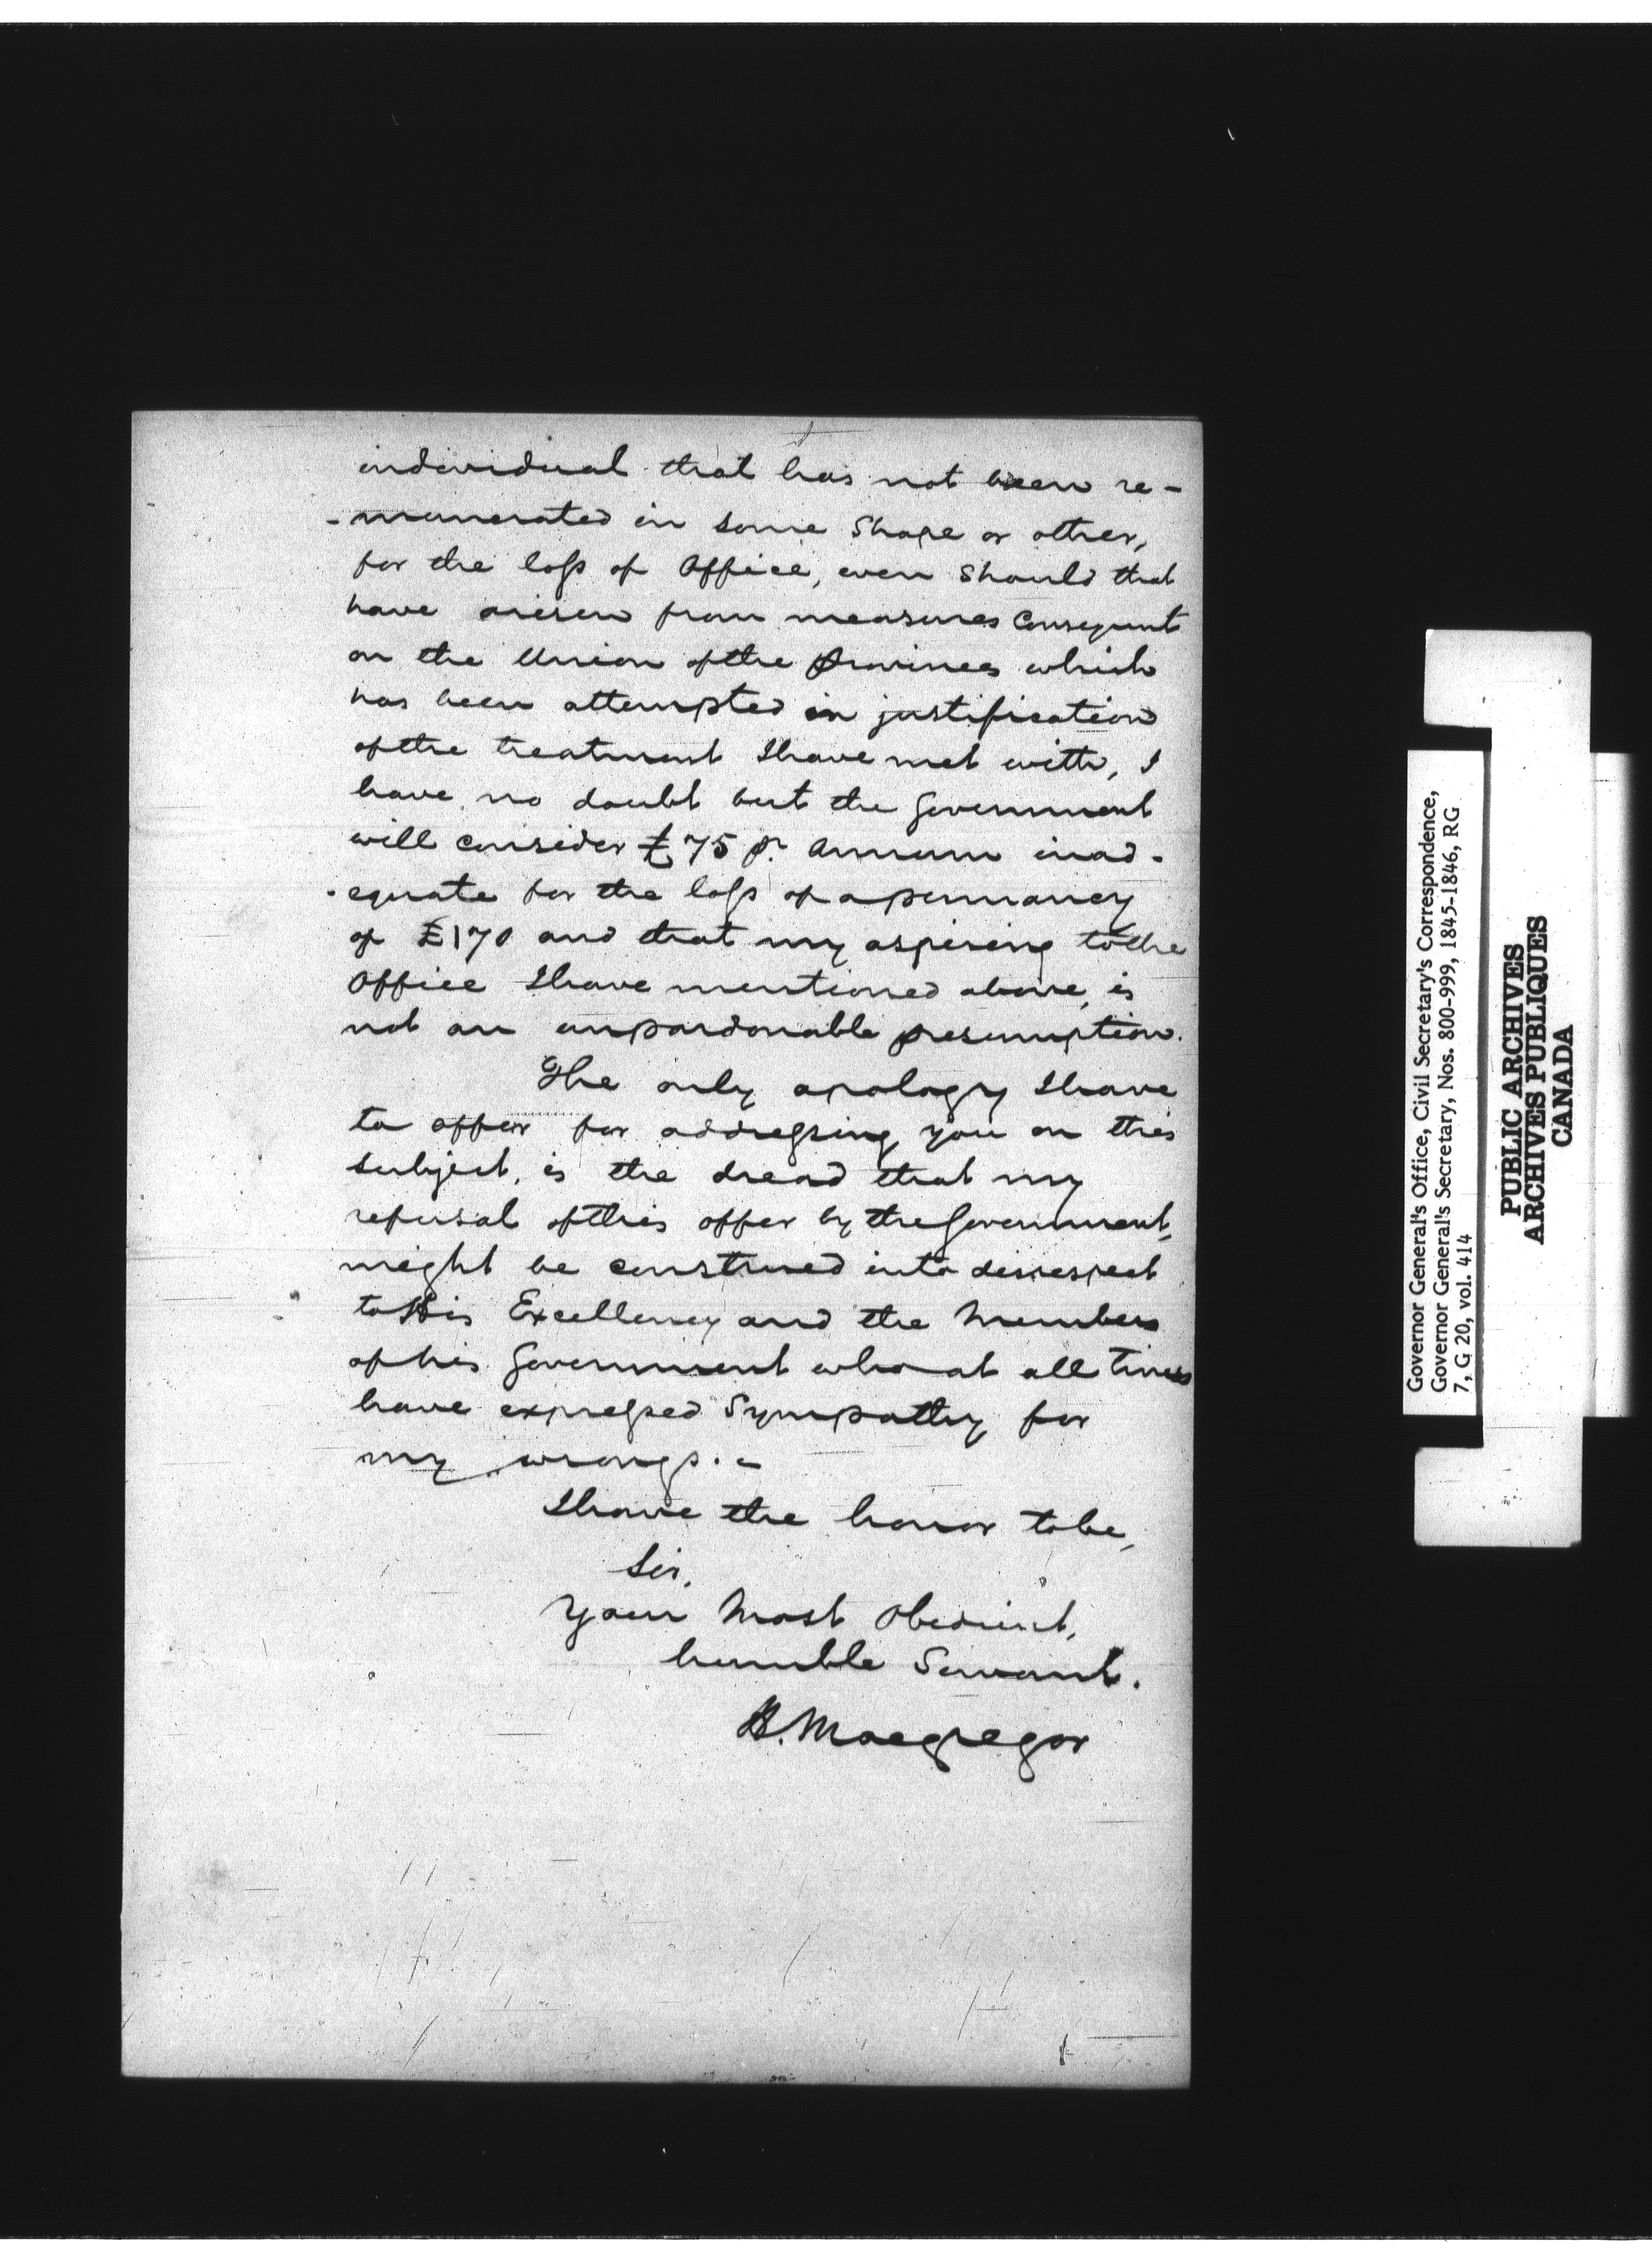 individual that has not been re-
-munerated in some Shape or other,
for the loss of Office, even Should that
have arisen from measures Consequent
on the Union of the Provinces which
has been attempted in justification
of the treatment I have met with, I
have no doubt but the Government
will consider £75 pr. Annum inad-
-equate for the loss of a permanency
of £170 and that my aspiring to the
Office I have mentioned above, is
not an unpardonable presumption.
The only apology I have
to offer for addressing you on this
subject, is the dread that my
refusal of this offer by the Government,
might be construed into disrespect
to His Excellency and the Members
of his Government who at all Times
have expressed Sympathy for
my wrongs.-
I have the honor to be,
Sir,
Your Most Obedient,
humble Servant.
H. Macgregor
Governor General's Office, Civil Secretary's Correspondence,
Governor General's Secretary, Nos. 800-999, 1845-1846, RG
7, G 20, vol. 414
PUBLIC ARCHIVES
ARCHIVES PUBLIQUES
CANADA